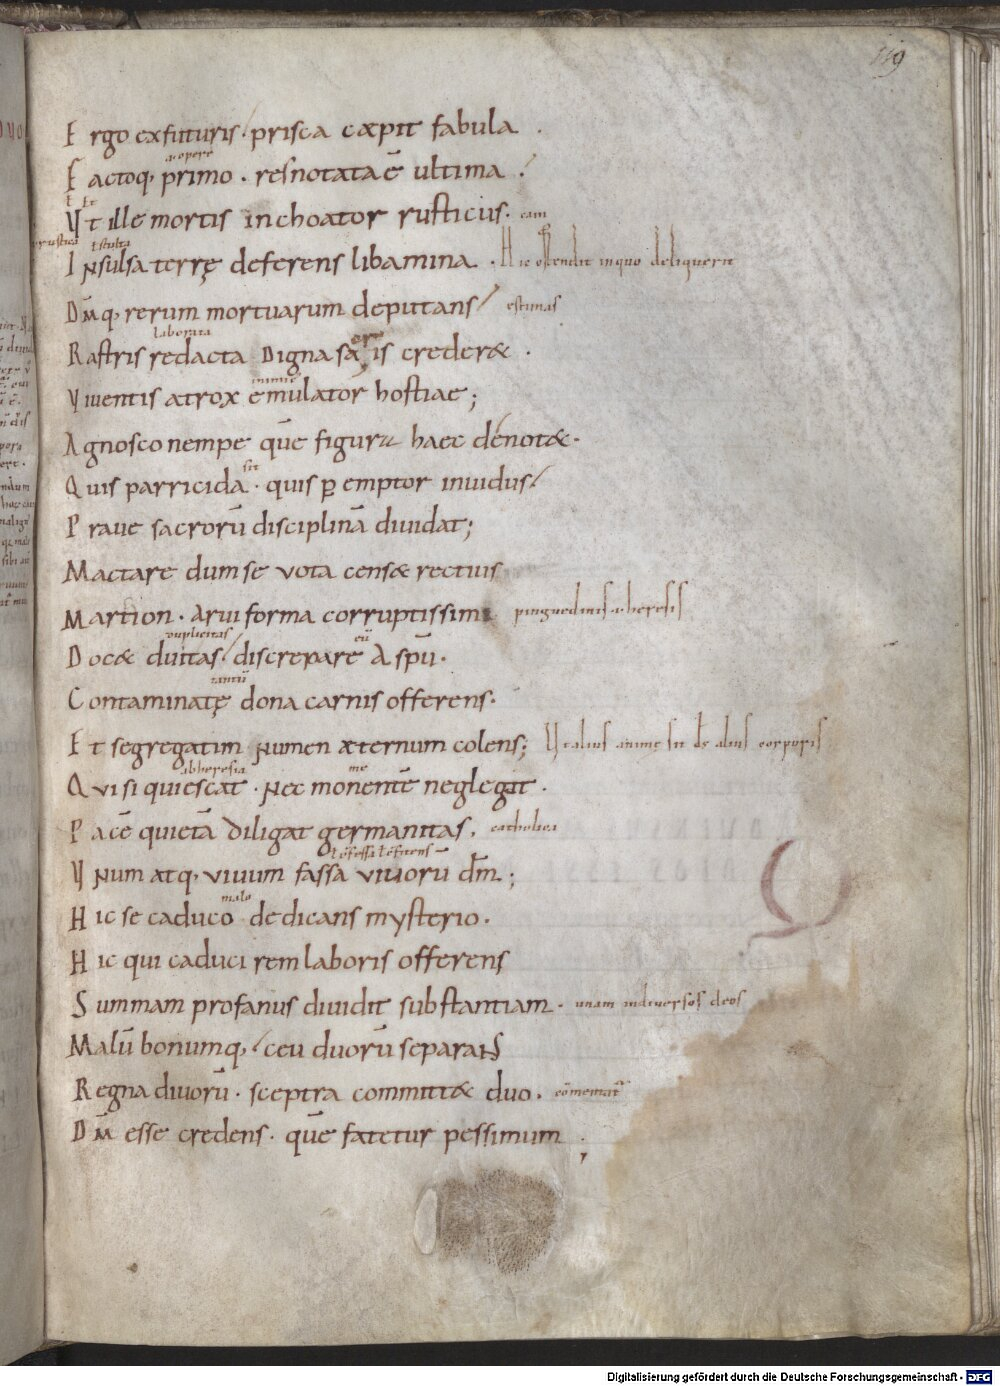 119
Ergo ex futuris prisca cæpit fabula .
a opere
Factoq, primo . res notata ē ultima
Ut ille mortis inchoator rusticus.
rustica ł stulta
Insulsa terrę deferens libamina . Hic ostendit in quo deliquerit
Dm̄q, rerum mortuarum deputans estimas
laborata
Rastris redacta digna sacris crederæ .
Viuentis atrox ęmulator hostiae ;
Agnosco nempe quē figura haec denotæ.
sit
Quis parricida . quis pemptor inuidus
Praue sacrorū disciplinā diuidat ;
Mactare dum se vota censæ rectius
Martion . arui forma corruptissima pinguedinis a heresis
duplicitas eū
Docæ duitas discrepare a spū .
tantū
Contaminatę dona carnis offerens .
Et segregatim numen æternum colens ; Ut alius anime sit ds alius corporis
ab heresia me
Qui si quiescat . nec monentē neglegat .
Pacē quietā diligat germanitas , catholica
Unum atq, viuum fassa viuorū dm̄ ;
malo
Hic se caduco dedicans mysterio .
Hic qui caduci rem laboris offerens
Summam profanus diuidit substantiam . unam in diuersos deos
Malū bonumq, ceu duorū separans
Regna diuorū . sceptra committæ duo .
Dm̄ esse credens . quē fatetur pessimum ;
Digitalisierung gefördert durch die Deutsche Forschungsgemeinschaft - DFG